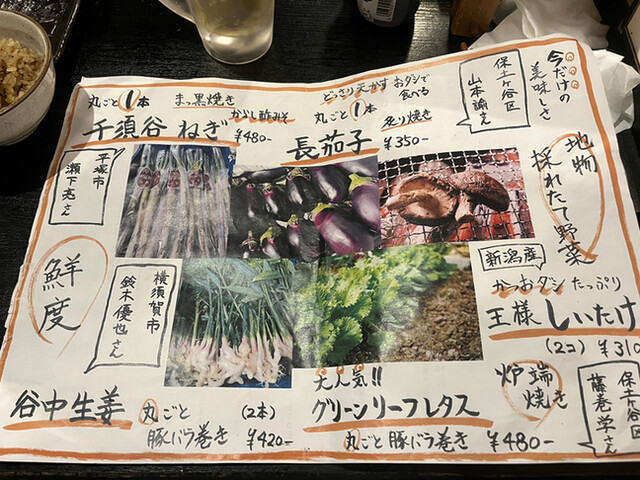 今だけの
美味しさ
地物
採れたて野菜
保土ヶ谷区
山本諭さん
どっさり天かす おダシで
食べる
丸ごと1本
炙り焼き
長茄子 ¥350-
丸ごと1本
まっ黒焼き
からし酢みそ
千須谷ねぎ ¥480-
平塚市
瀬下亮さん
鮮度
横須賀市
鈴木優也さん
新潟産
かつおダシ たっぷり
王様しいたけ
(2コ) ¥310
谷中生姜
丸ごと (2本)
豚バラ巻き ¥420-
大人気!!
グリーンリーフレタス
丸ごと 豚バラ巻き ¥480-
炉端
焼き
保土ヶ谷区
藤巻学さん